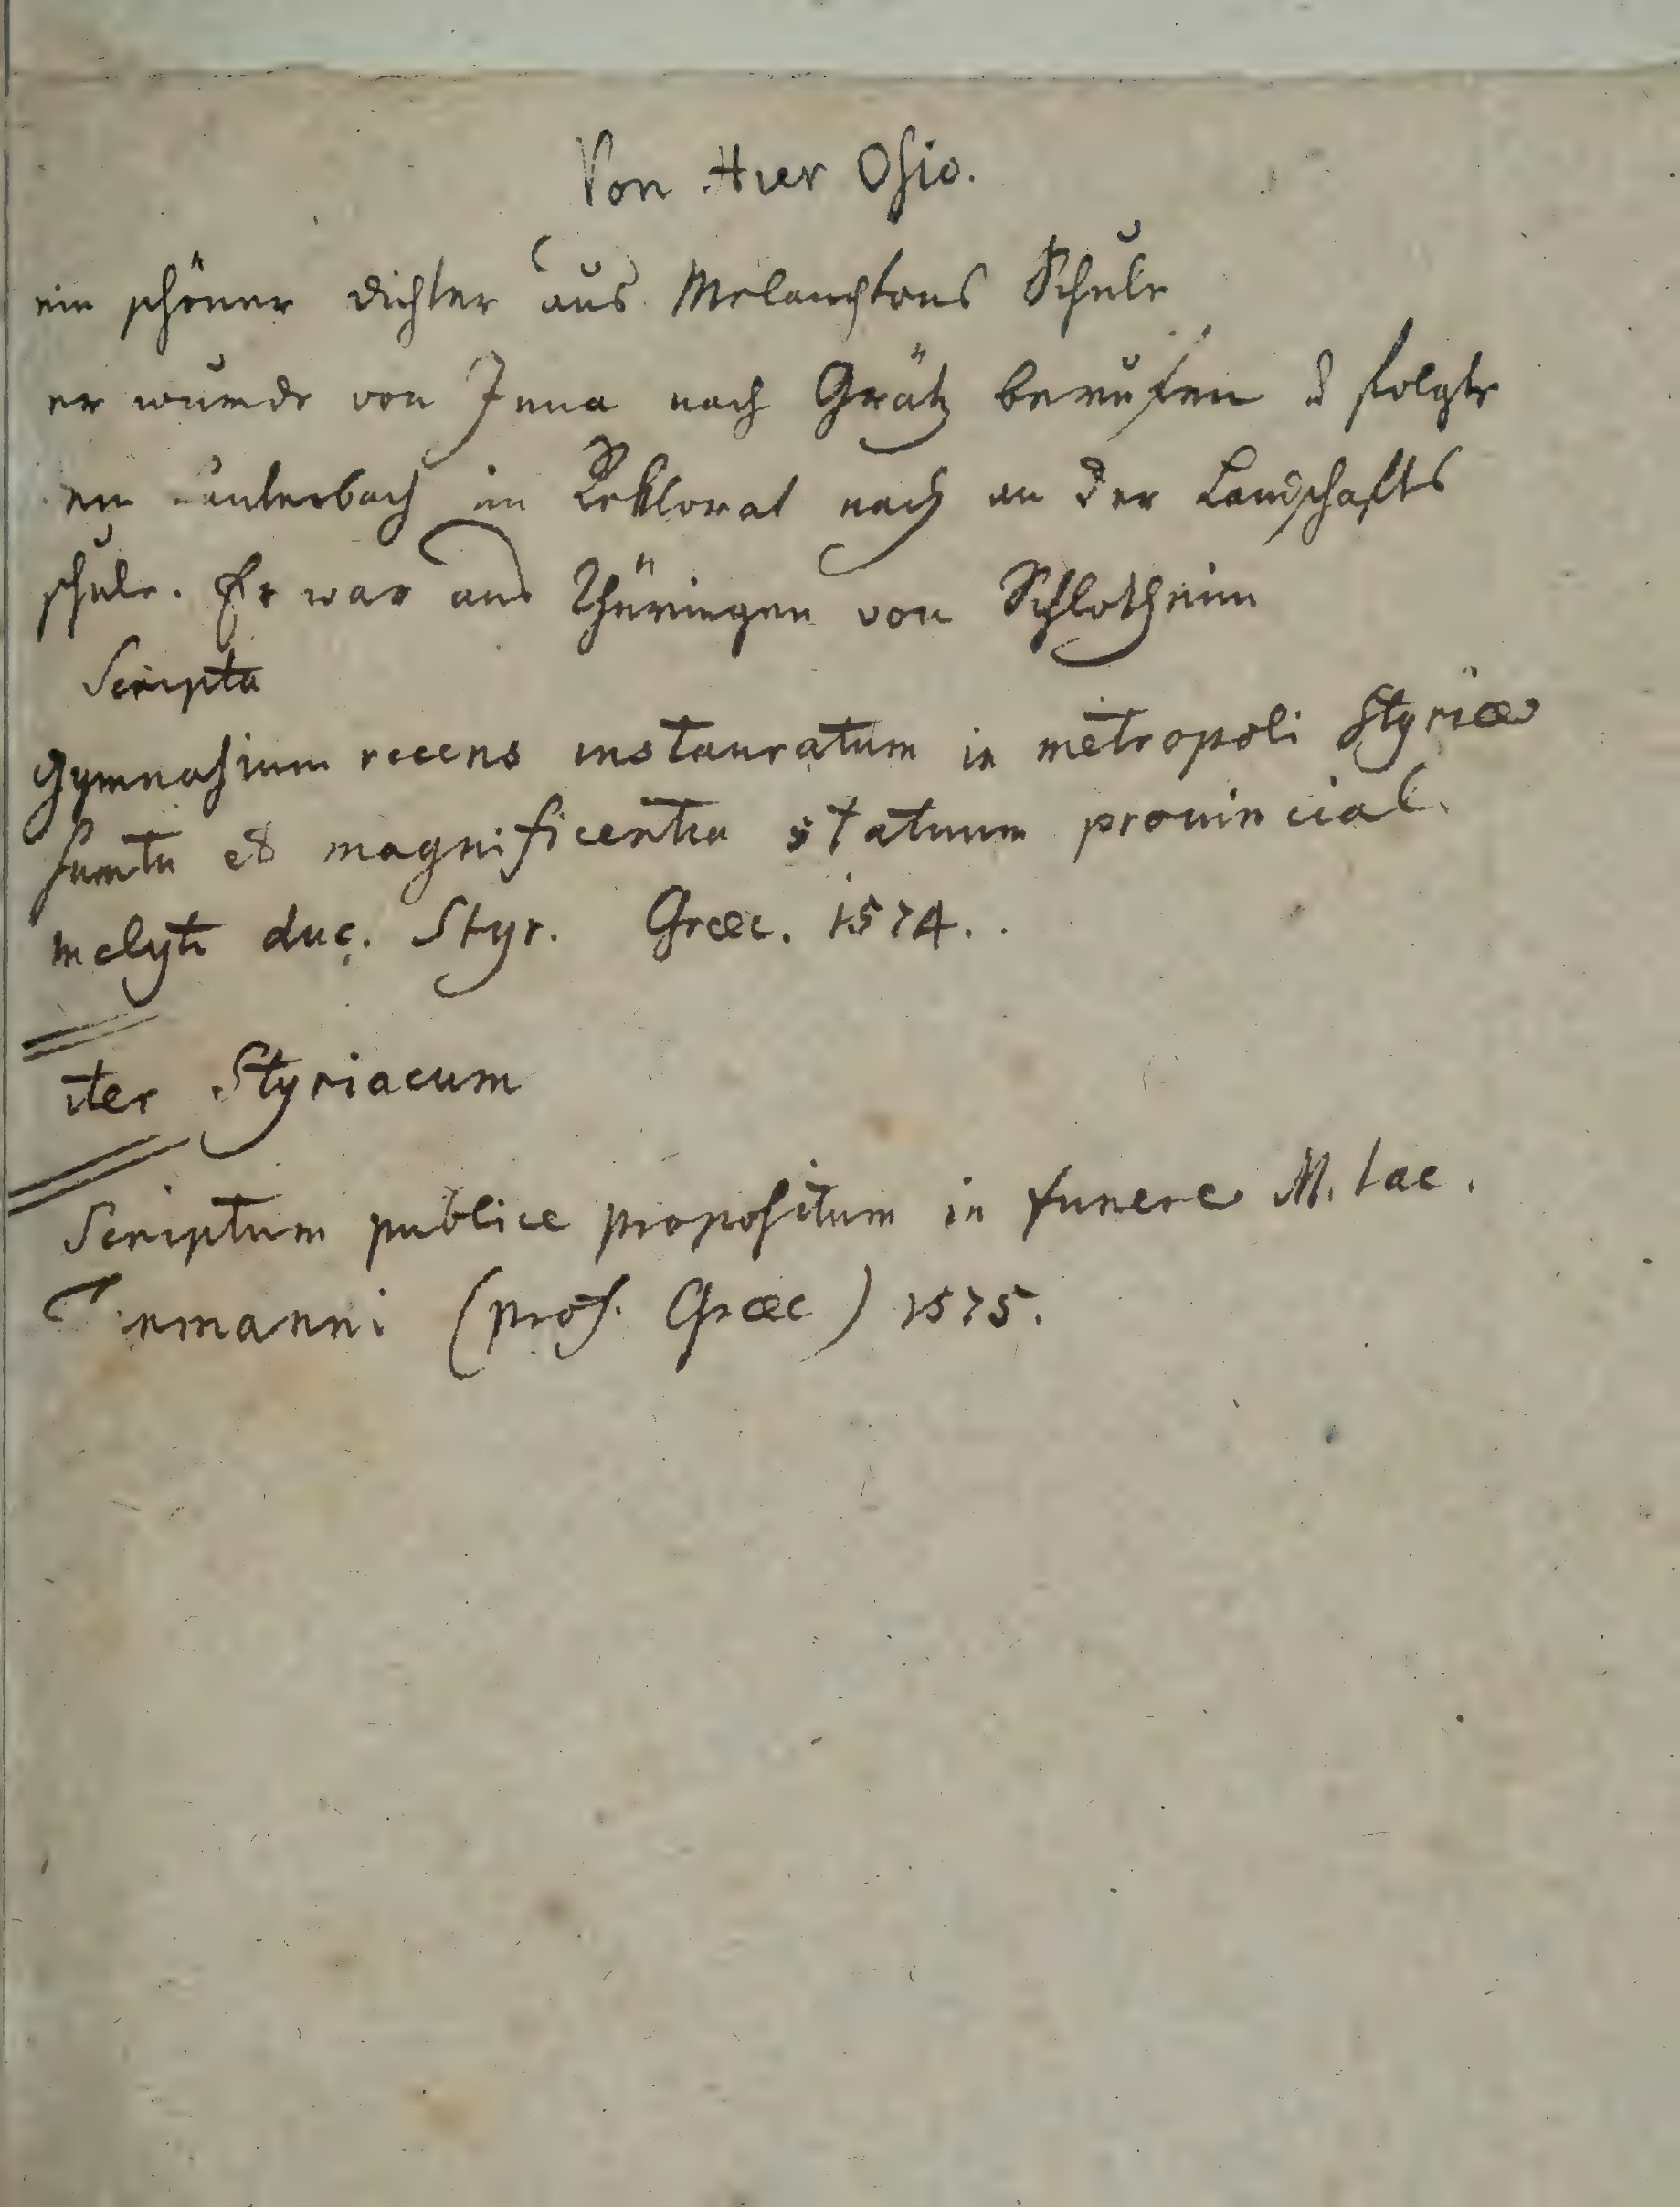 Von Hier Osio.
ein schöner dichter aus Melanchtons Schule
er wurde von Jena nach Grätz berufen & folgte
em Lauterbach im Rektorat nach an der Landschafts
schule. Er war aus Thüringen von Schlotheim
Scripta
Gymnasium recens instauratum in metropoli Styriæ
sumtu et magnificentia statuum prouincial.
inclyti duc. Styr. Græc. 1574.
iter Styriacum
Scriptum publice propositum in funere M. Iac.
(prof. Græc) 1575.